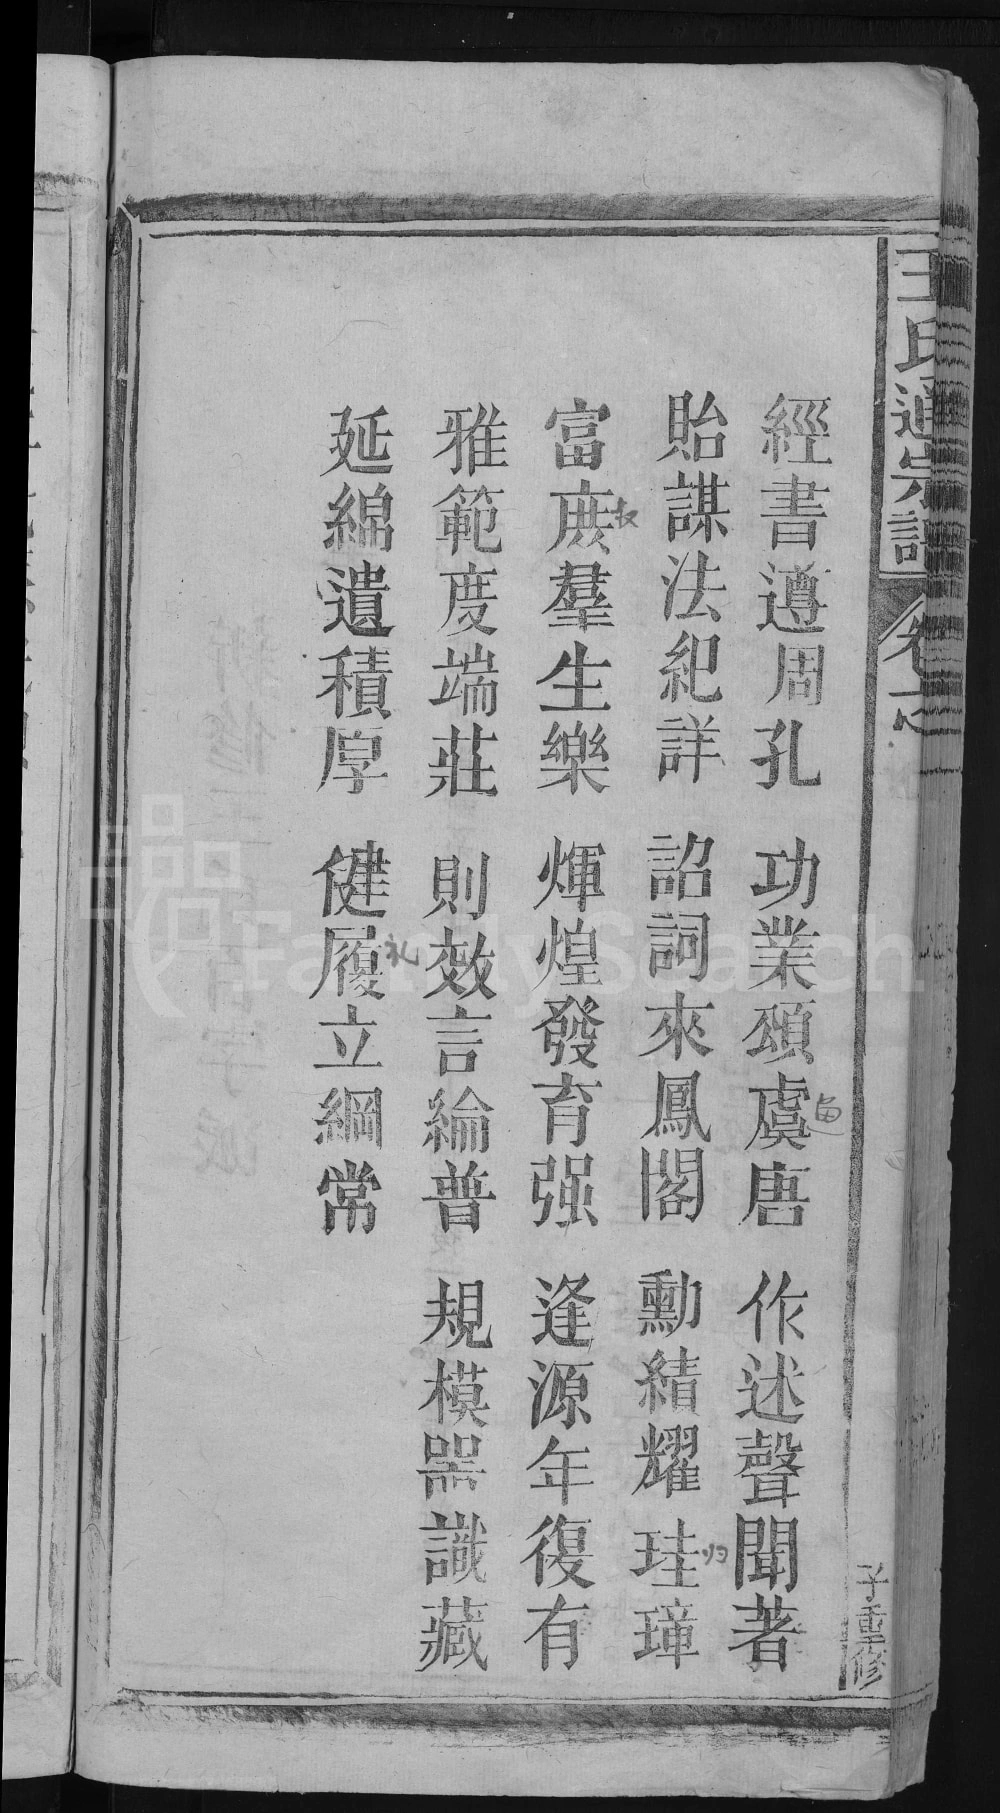 王氏通宗譜
卷之
子重修
經書遵周孔 功業頌虞唐 作述聲聞著
鹵
貽謀法紀詳 詔詞來鳳閣 勳績耀珪璋
归
富庶羣生樂 煇煌發育强 逢源年復有
雅範度端莊 則效言綸普 規模器識藏
延綿遺積厚 健履立綱常
礼
FamilySearch